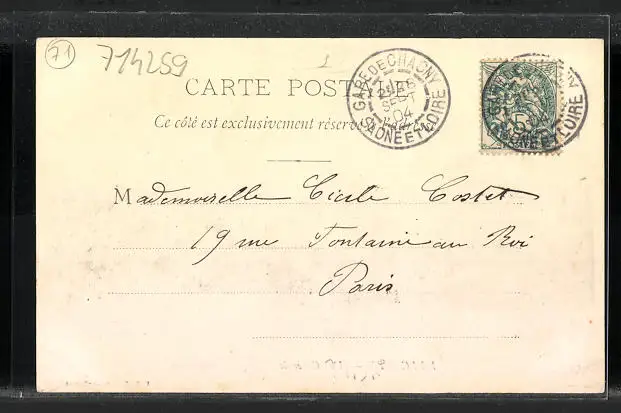 71
714259
1
CARTE POSTALE
Ce côté est exclusivement réservé
GARE DE CHAGNY
SEPT
04
SAONE ET LOIRE
Mademoiselle Cécile Costet
19 rue Fontaine au Roi
Paris
5
ET LOIRE